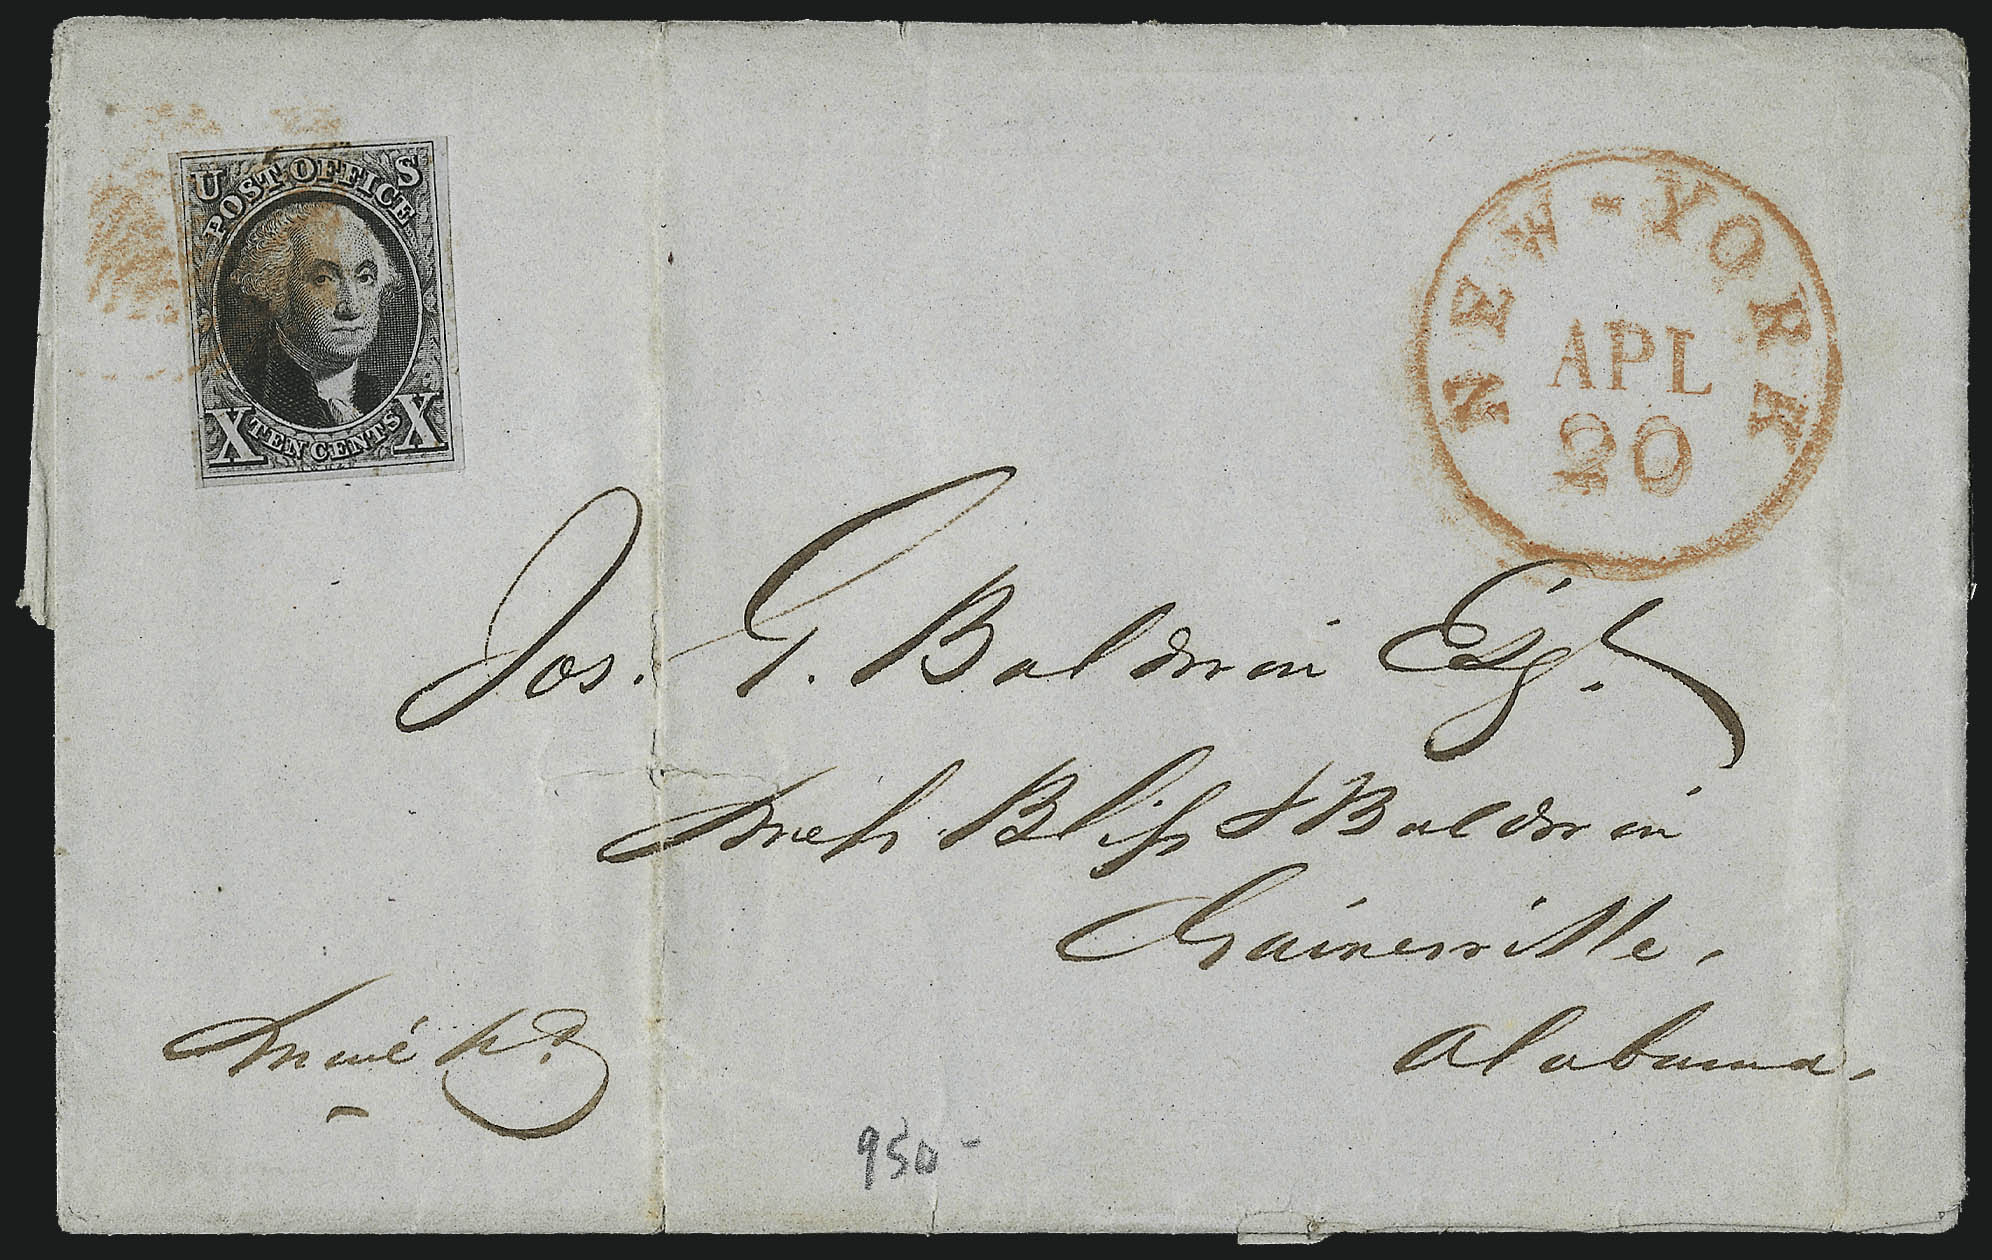 U S
POST OFFICE
X TEN CENTS X
NEW-YORK
APL
20
Jos. G. Baldwin Esqr.
Bliss & Baldwin
Gainesville,
Alabama.
Pd.
950-